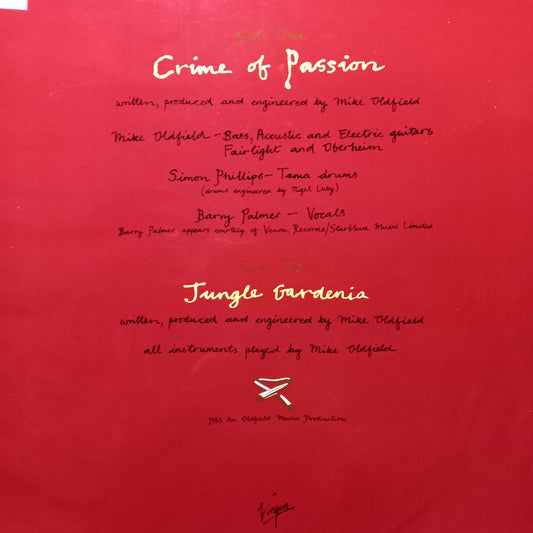 Side One
Crime of Passion
written, produced and engineered by Mike Oldfield
Mike Oldfield – Bass, Acoustic and Electric guitars
Fairlight and Oberheim
Simon Phillips – Tama drums
(drums engineered by Nigel Luby)
Barry Palmer – Vocals
Barry Palmer appears courtesy of Venon Records/Starblend Music Limited
Side Two
Jungle Gardenia
written, produced and engineered by Mike Oldfield
all instruments played by Mike Oldfield
1983 An Oldfield Music Production
Virgin